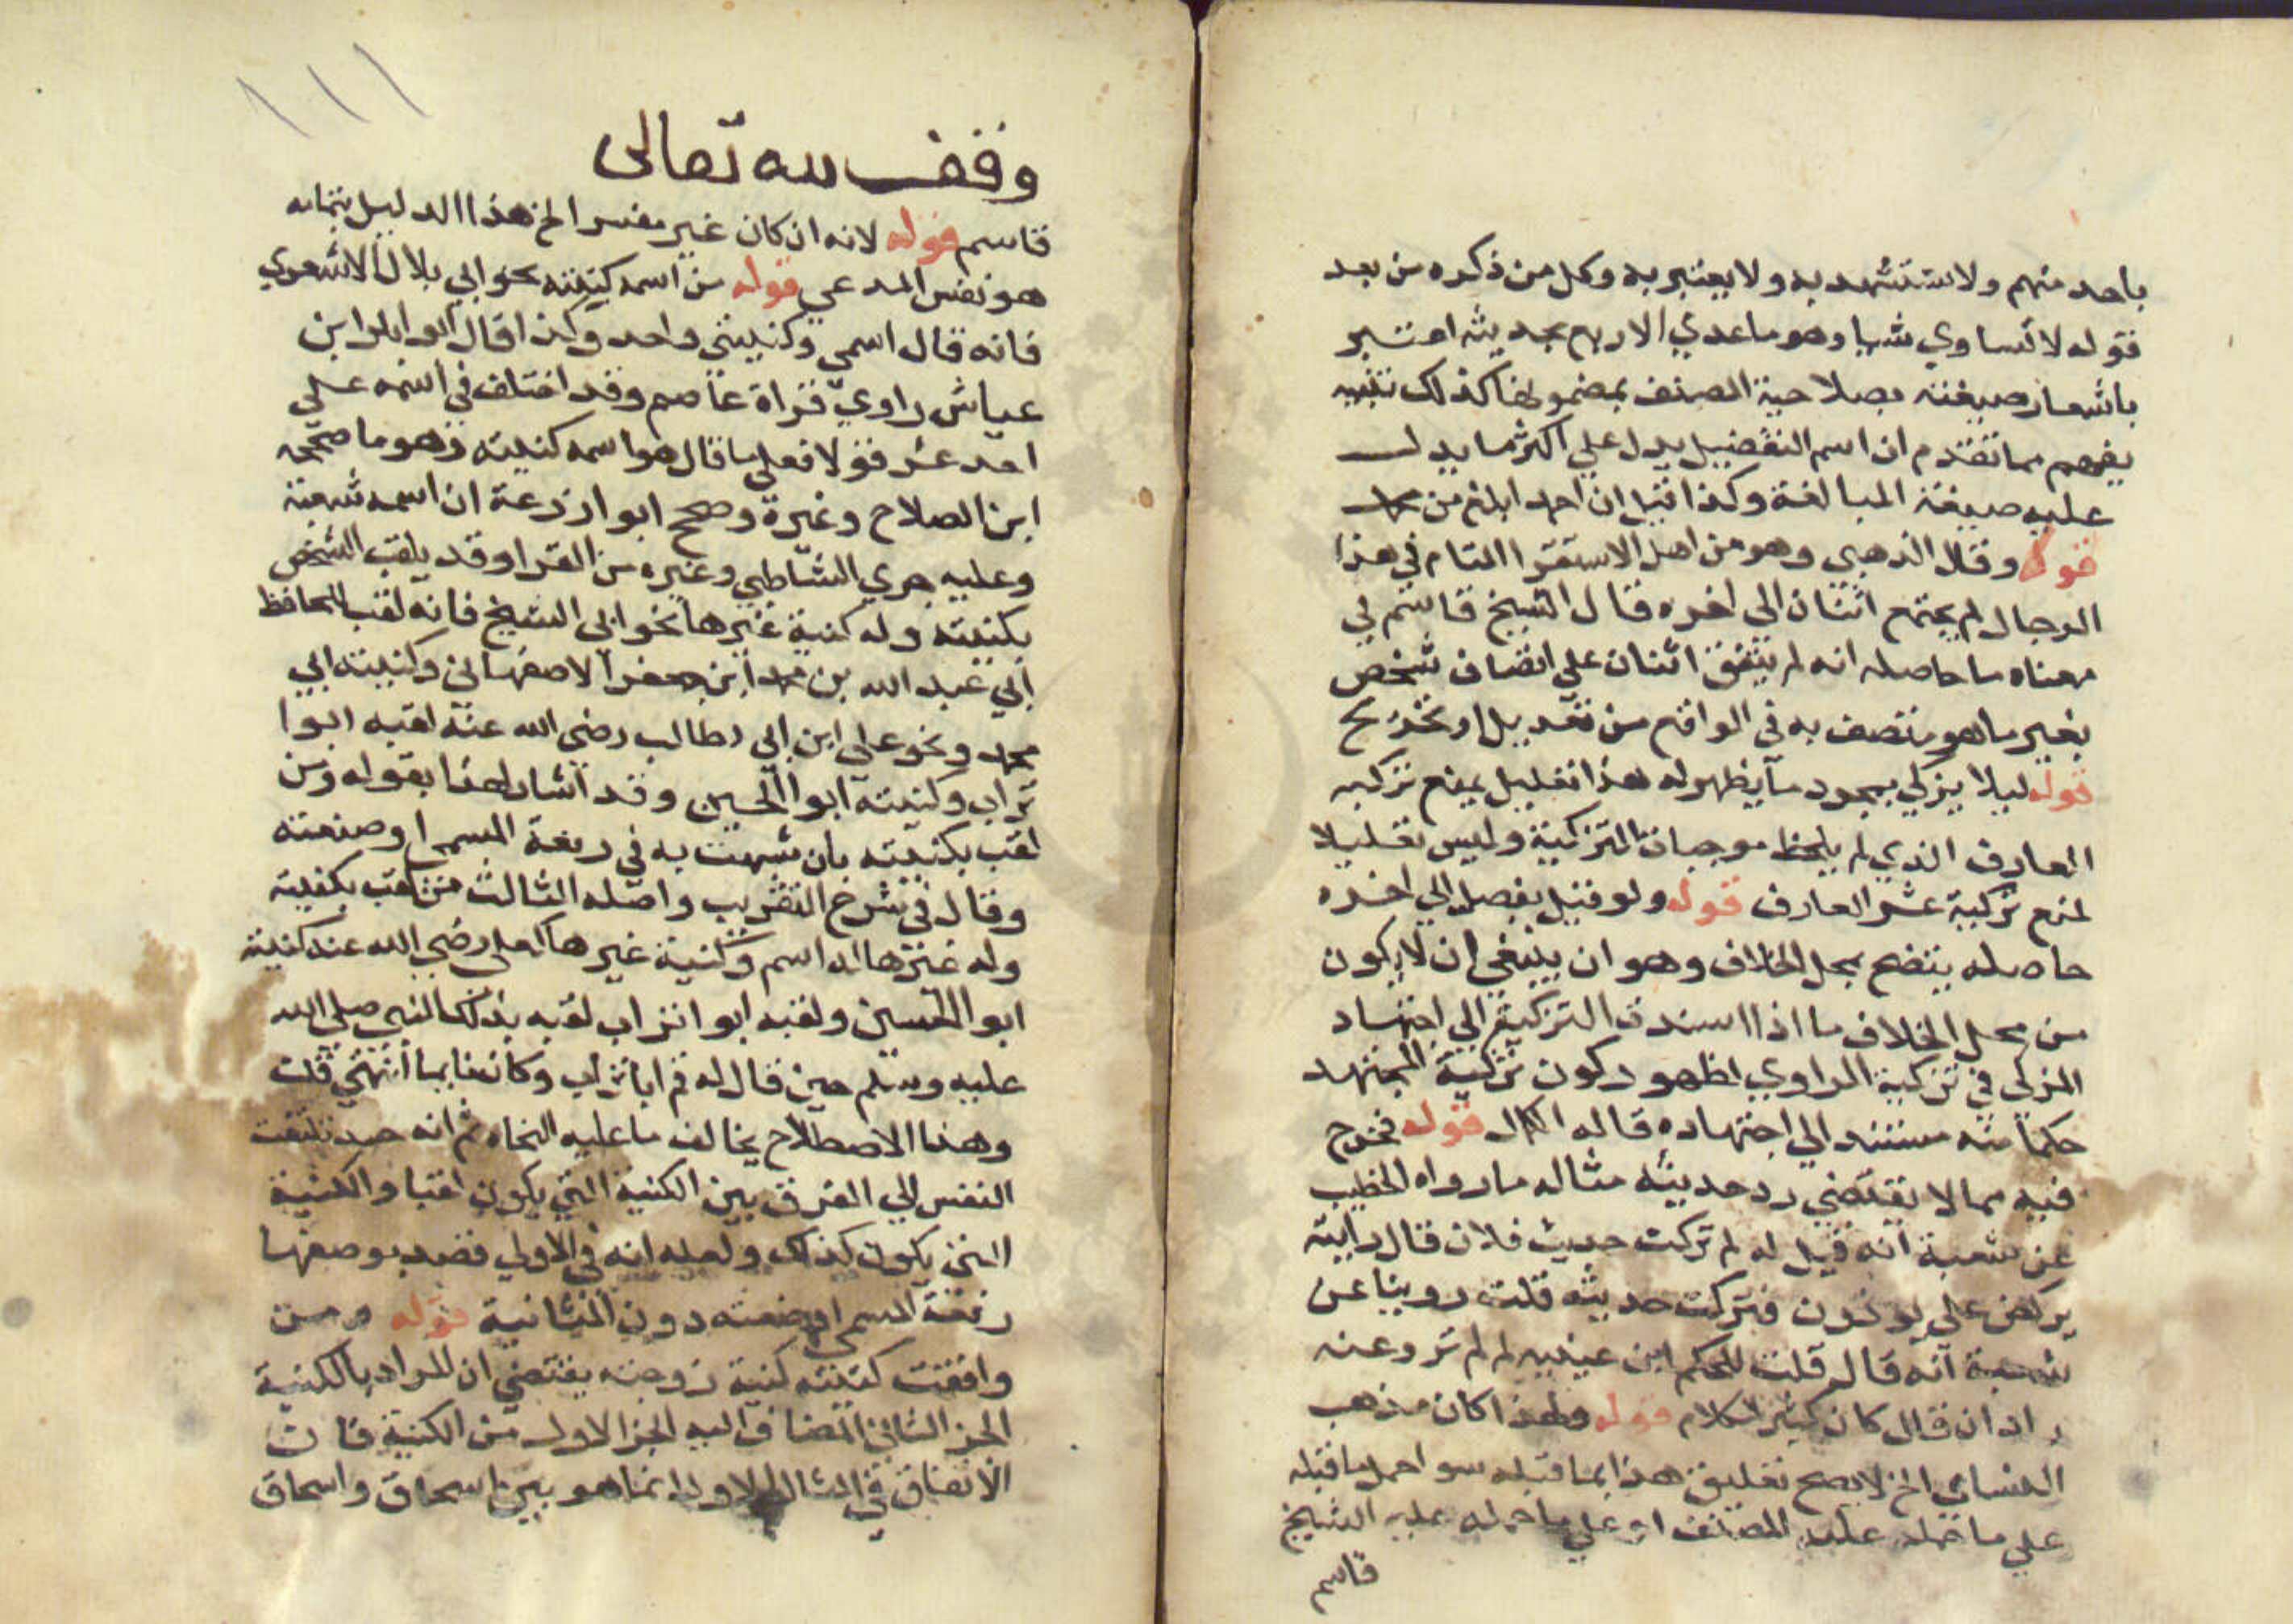 باحد منهم ولا يستشهد به ولا يعتبر به وكل من ذكره من بعد
قوله لا تساوي شيا وهو ما عدي الاربع بحديثه اعتبر
باشعار صيغته بصلاحية المصنف بمضمونها كذلك تنبيه
يفهم مما تقدم ان اسم التفضيل يدل علي اكثر ما يدل
عليه صيغة المبالغة وكذا قيل ان احمد ابلغ من محمد
قوله وقال الذهبي وهو من اهل الاستقرا التام في هذا
الرجال لم يجتمع اثنان الى اخره قال الشيخ قاسم في
معناه ما حاصله انه لم يتفق اثنان على اتصاف شخص
بغير ما هو متصف به في الواقع من تعديل او تخريج
قوله ليلا يزكي بمجرد ما يظهر له هذا تعليل يمنع تزكيه
العارف الذي لم يلحظ موجبات التزكية وليس تعليلا
لمنع تزكية عشر العارف قوله ولو قيل يفصل الي اخره
حاصله يتضح بمحل الخلاف وهو ان ينبغي ان لا يكون
من محل الخلاف ما اذا اسندت التزكية الي اجتهاد
المزكي في تزكية الراوي لظهور كون تزكية المجتهد
حكما منه مستند الي اجتهاده قاله الكمال قوله فخرج
فيه مما لا يقتضي رد حديثه مثاله ما رواه الخطيب
عن شعبة انه قيل له لم تركت حديث فلان قال رايته
يركض علي برذون فتركت حديثه قلت روينا عن
شعبة انه قال قلت للحكم ابن عيينه لم لم ترو عنه
راذان قال كان كثير الكلام قوله ولهذا كان مذهب
النساي الخ لا يصح تعليق هذا بما قبله سوا حمل ما قبله
علي ما حمله عليه المصنف او علي ما حمله عليه الشيخ
قاسم
١١١
وقف لله تعالى
قاسم قوله لانه ان كان غير مفسر الخ هذا الدليل بتمامه
هو نفس المدعي قوله من اسمه كنيته نحو ابي بلال الاشعري
فانه قال اسمي وكنيتي واحد وكذا قال ابو ابكر ابن
عياش راوي قراة عاصم وقد اختلف في اسمه علي
احد عشر قولا فعلي ما قال هو اسمه كنيته وهو ما صححه
ابن الصلاح وغيره وصحح ابو ازرعة ان اسمه شعبة
وعليه جري الشاطبي وغيره من القرا وقد يلقب الشخص
بكنيته وله كنية غيرها نحو ابي الشيخ فانه لقب للحافظ
ابي عبد الله بن محمد ابن جعفر الاصفهاني وكنيته ابي
محمد ونحو علي ابن ابي طالب رضي الله عنه لقبه ابوا
تراب وكنيته ابوا الحسين وقد اشار لهذا بقوله ومن
لقب بكنيته بان شبهت به في رفعة المسمى او صنعته
وقال في شرح التقريب واصله الثالث من لقب بكنيته
وله غيرها له اسم وكنية غيرها كعلي رضي الله عنه كنية
ابو الحسين ولقبه ابو اتراب لقبه بذلك النبي صلي الله
عليه وسلم حين قال له قم ابا تراب وكان نايما انتهي قلت
وهذا الاصطلاح يخالف ما عليه النحاه ثم انه حيد تلتفت
النفس الي الفرق بين الكنية التي يكون لقبا والكنية
التي يكون كذلك ولعله انه في الاولي قصد بوصفها
رفعة المسمى او ضعته دون الثانية قوله ومن
وافقت كنيته كنية زوجته يقتضي ان المراد بالكنية
الجز الثاني المضاف اليه الجز الاول من الكنية فان
الاتفاق في المثال الاول انما هو بين اسحاق واسحاق